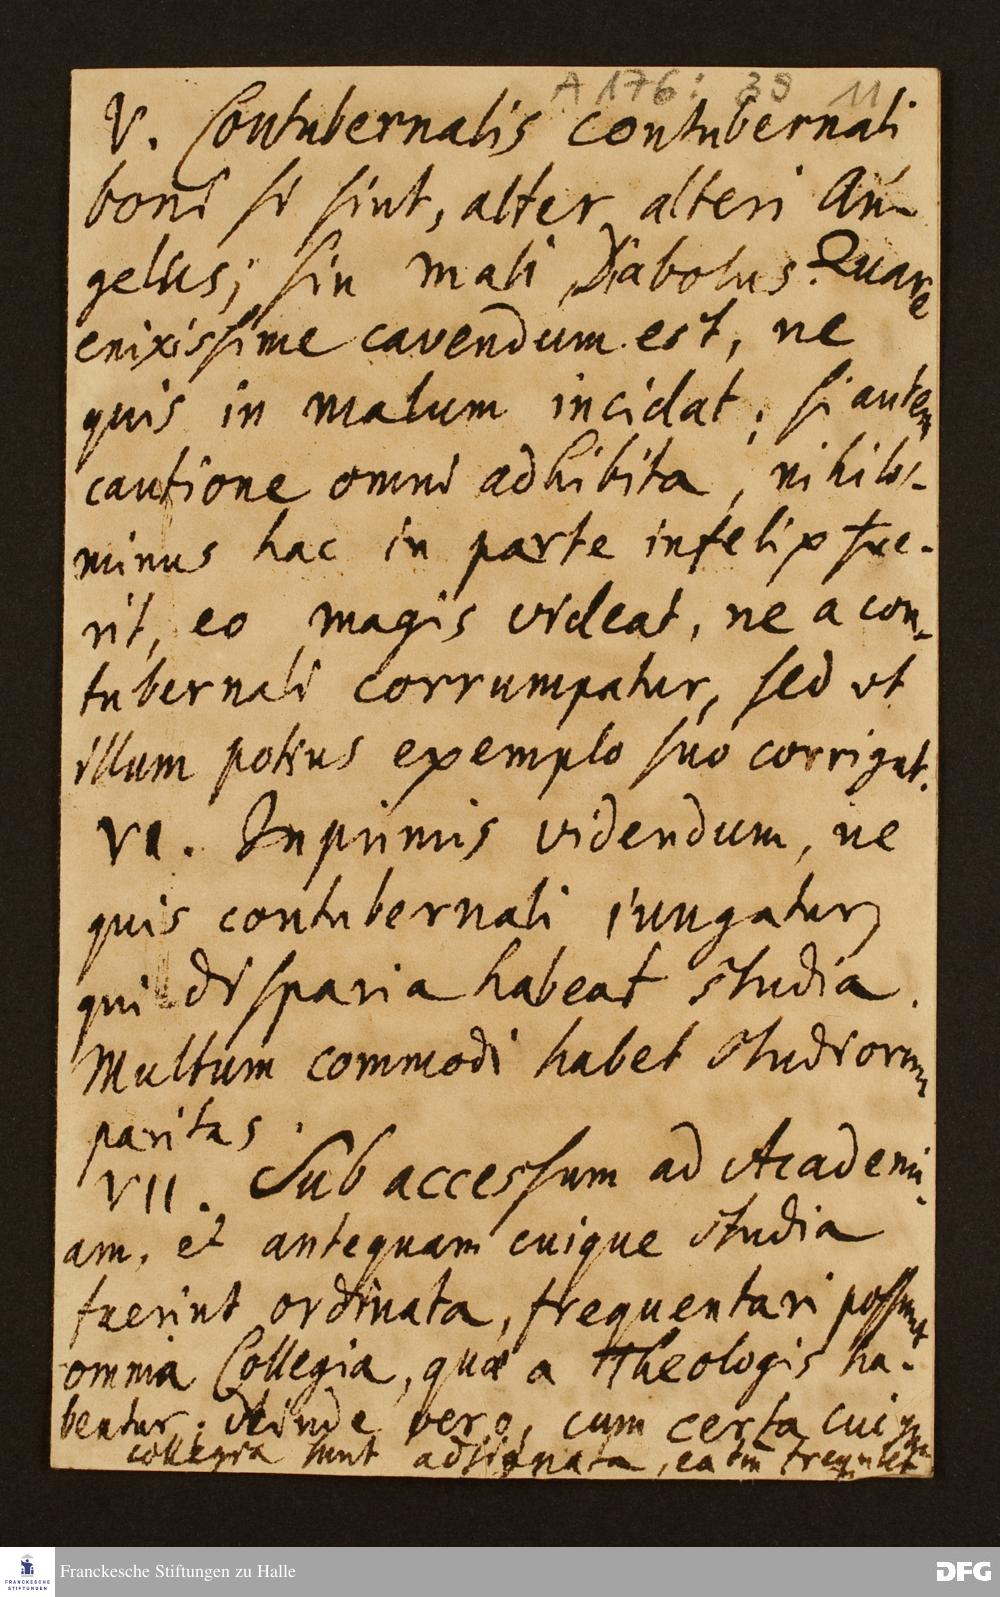 A 176 : 39 11
V. Contubernalis contubernali
boni si sint, alter alteri An-
gelus; sin mali Diabolus. Quare
enixissime cavendum est, ne
quis in malum incidat; si autem
cautione omni adhibita, nihilo-
minus hac in parte infelix fue-
rit, eo magis videat, ne a con-
tubernali corrumpatur, sed ut
illum potius exemplo suo corrigat.
VI. Inprimis videndum, ne
quis contubernali iungatur,
qui disparia habeat studia.
Multum commodi habet studiorum
paritas.
VII. Sub accessum ad Academi-
am, et antequam cuique studia
fuerint ordinata, frequentari possunt
omnia Collegia, quæ a Theologis ha-
bentur; deinde vero, cum certa cuique
collegia sunt adsignata, ea tm frequentet
Franckesche Stiftungen zu Halle
FRANCKESCHE
STIFTUNGEN
DFG